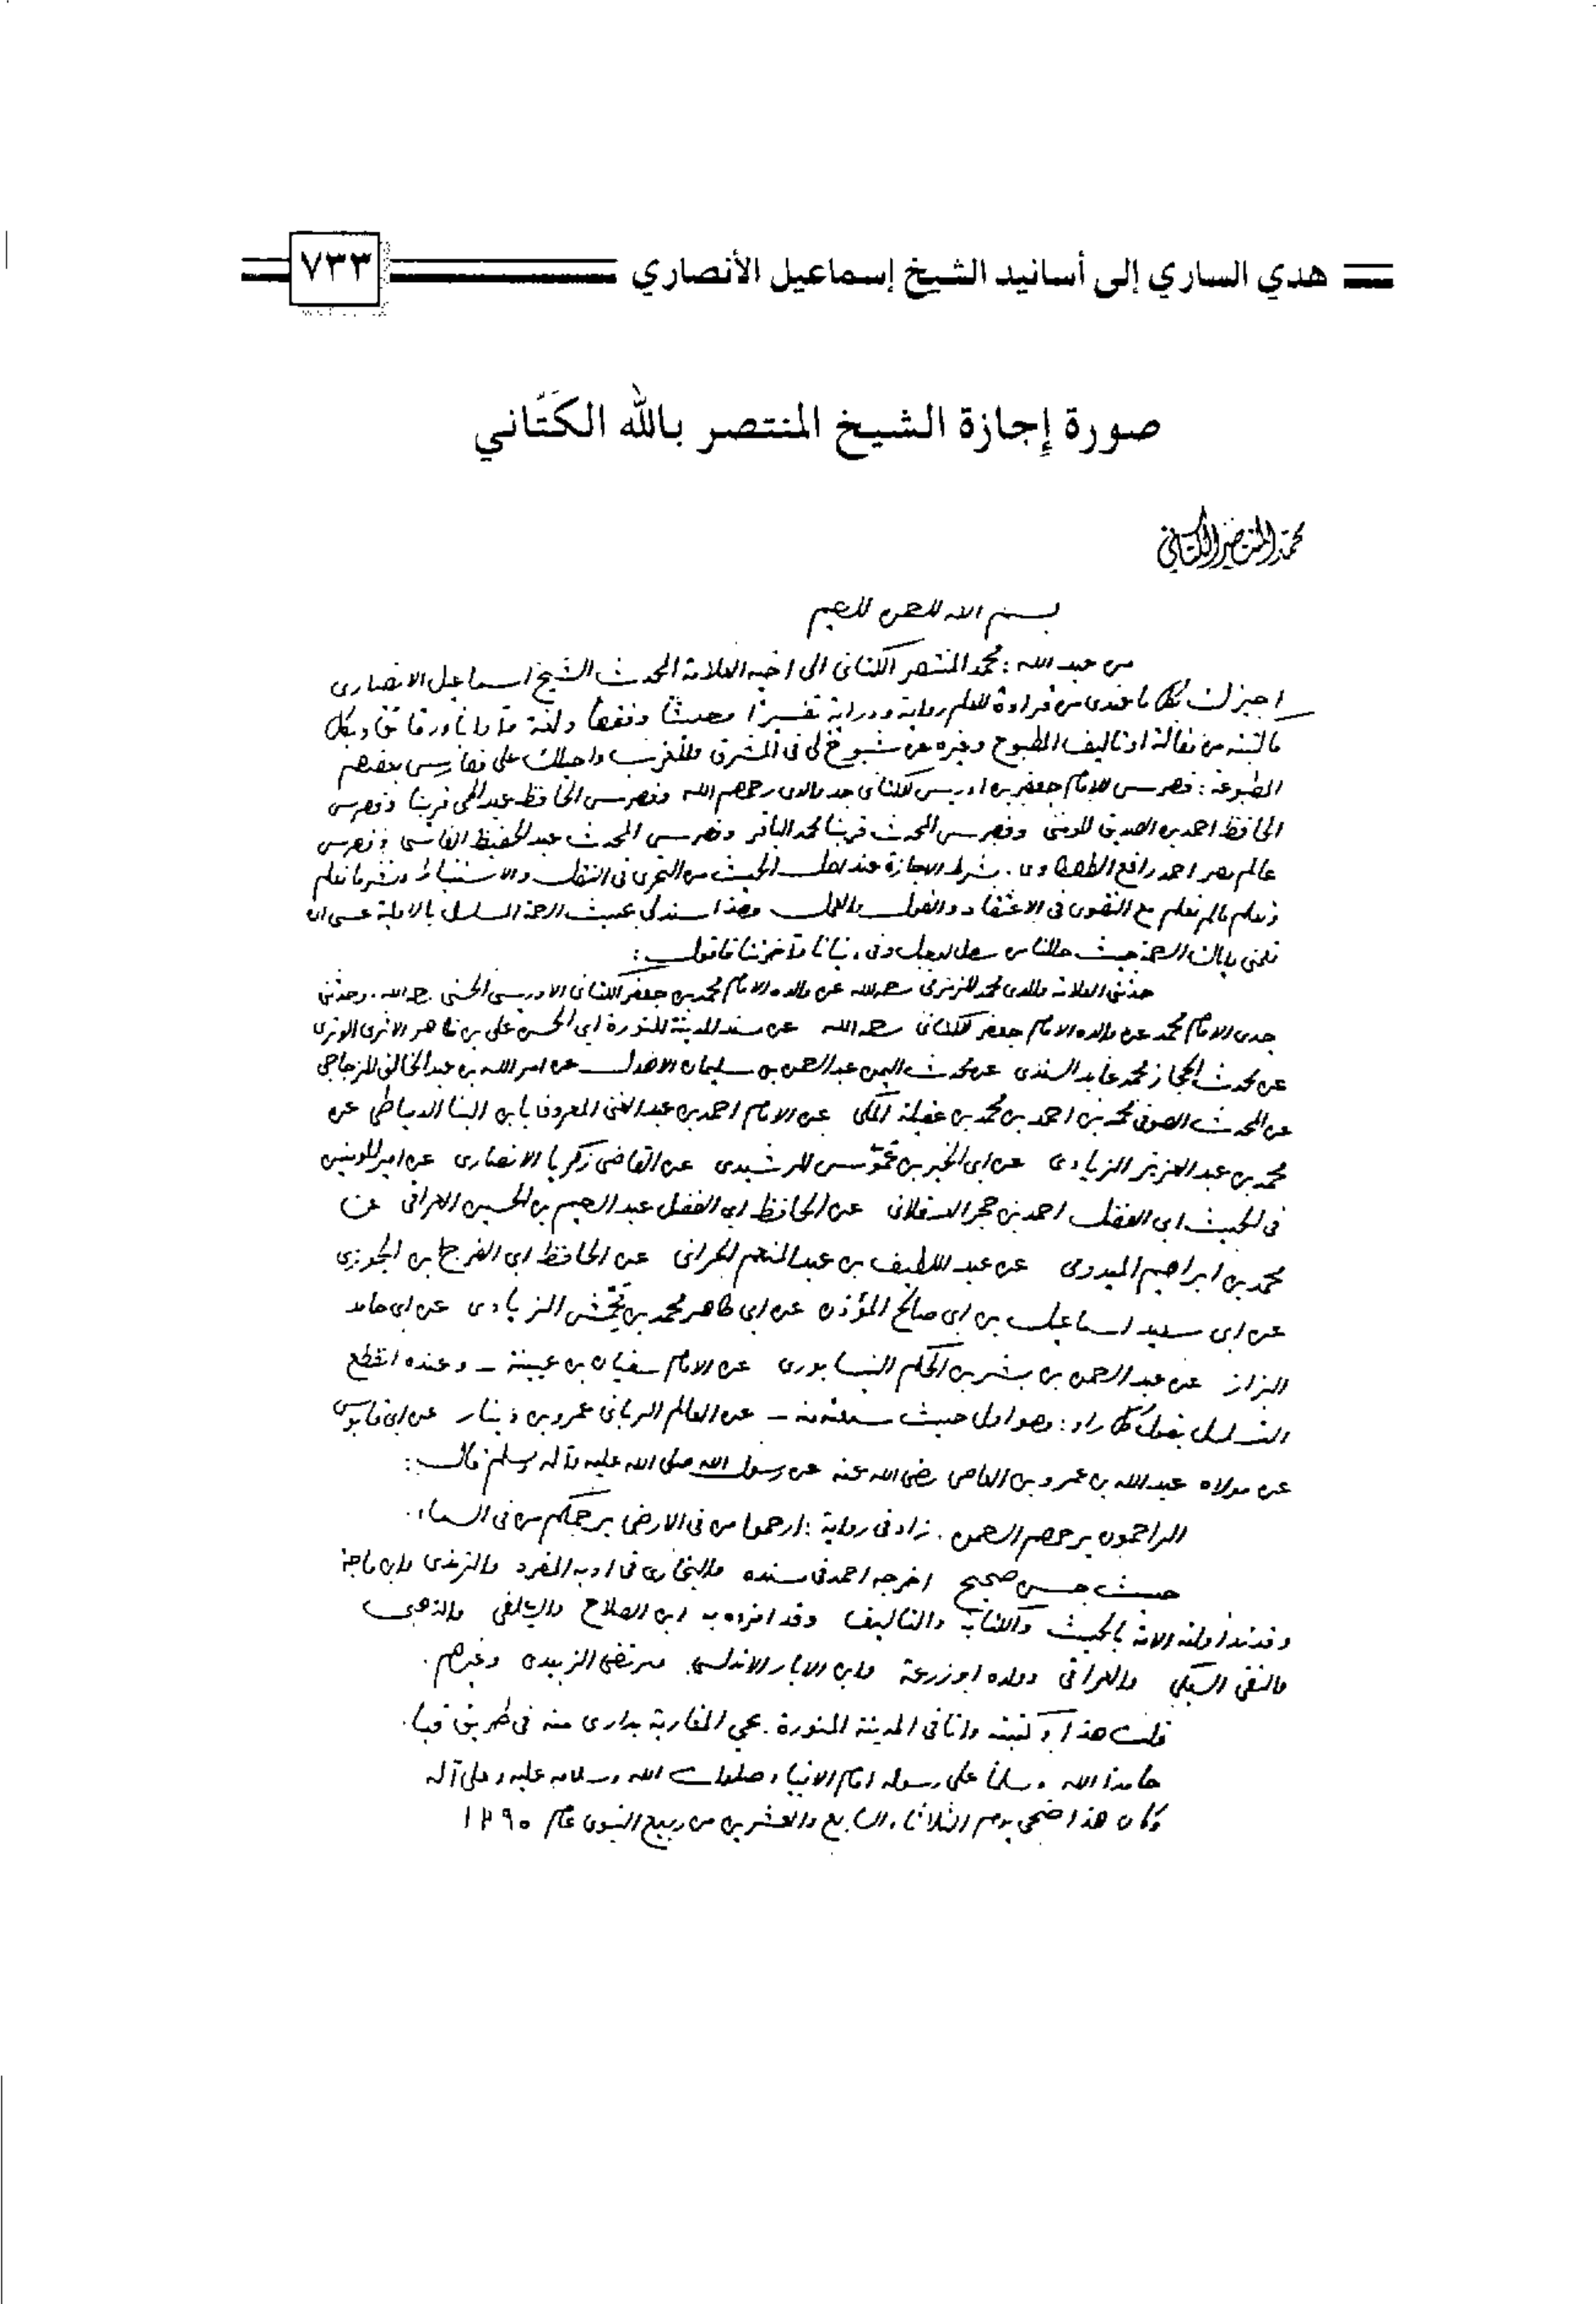 هدي الساري إلى أسانيد الشيخ إسماعيل الأنصاري ٧٣٣
صورة إجازة الشيخ المنتصر بالله الكَتّاني
محمد المنتصر الكتاني
بسم الله الرحمن الرحيم
من عبد الله : محمد المنتصر الكتانى الى اخيه العلامة المحدث الشيخ اسماعيل الانصارى
اجيزك بكل ما عندى من قراءة للعلم رواية ودراية تفسيرًا وحديثًا وفقهًا ولغة وبكل
ما كتبته من مقالة او تاليف المطبوع وغيره عن شيوخ لى فى المشرق والمغرب واحيلك على فهارس بعضهم
المطبوعة : فهرس الامام جعفر بن ادريس الكتانى جد والدى رحمهم الله وفهرس الحافظ عبد الحي قريبنا وفهرس
الحافظ احمد بن الصديق وفهرس المحدث قريبنا محمد الباقر وفهرس المحدث عبد الحفيظ الفاسى وفهرس
عالم مصر احمد رافع الطهطاوى . بشرط الاجازة عند اهل الحديث من التحرى فى النقل والاستنباط ونشر ما نعلم
وتعلم ما لم نعلم مع التقوى فى الاعتقاد والقول والعمل وهذا سندى بحديث الرحمة المسلسل بالاولية عسى ان
حدثنى العلامة والدى محمد الزمزمى رحمه الله عن والده الامام محمد بن جعفر الكتانى الادريسى الحسنى رحمه الله . وحدثنى
جدى الامام محمد عن والده الامام جعفر الكتانى رحمه الله عن مسند المدينة المنورة ابى الحسن على بن ظاهر الاثرى الوترى
عن محدث الحجاز محمد عابد السندى عن محدث اليمن عبد الرحمن بن سليمان الاهدل عن امر الله بن عبد الخالق المزجاجي
عن المحدث الصوفى محمد بن احمد بن محمد بن عقيلة المكى عن الامام احمد بن عبد الغنى المعروف بابن البنا الدمياطى عن
محمد بن عبد العزيز الزيادى عن ابى الخير بن عموس الرشيدى عن القاضى زكريا الانصارى عن امير المومنين
فى الحديث ابى الفضل احمد بن حجر العسقلانى عن الحافظ ابى الفضل عبد الرحيم بن الحسين العراقى عن
محمد بن ابراهيم الميدومى عن عبد اللطيف بن عبد المنعم الحرانى عن الحافظ ابى الفرج بن الجوزى
عن ابى سعيد اسماعيل بن ابى صالح المؤذن عن ابى طاهر محمد بن مَحْمِش الزيادى عن ابى حامد
البزاز عن عبد الرحمن بن بشر بن الحكم النيسابورى عن الامام سفيان بن عيينة - وعنده انقطع
التسلسل بقول كل راو : وهو اول حديث سمعته منه - عن العالم الربانى عمرو بن دينار عن ابى قابوس
عن مولاه عبد الله بن عمرو بن العاص رضى الله عنه عن رسول الله صلى الله عليه وآله وسلم قال :
الراحمون يرحمهم الرحمن . زاد فى رواية : ارحموا من فى الارض يرحمكم من فى السماء .
حديث حسن صحيح اخرجه احمد فى مسنده والبخارى فى ادبه المفرد والترمذى وابن ماجة
وقد تداولته الامة بالحديث والكتابة والتاليف وقد افرده ابن الصلاح والسلفى والذهبى
والتقى السبكى والعراقى وولده ابو زرعة وابن الابار الاندلسى مرتضى الزبيدى وغيرهم .
قلت هذا وكتبته وانا فى المدينة المنورة . بحي المغاربة بدارى منه فى طريق قبا .
حامدا الله ومسلما على رسوله امام الانبياء صلوات الله وسلامه عليه وعلى آله
وكان هذا ضحى يوم الثلاثاء السابع والعشرين من ربيع النبوى عام ١٣٩٠